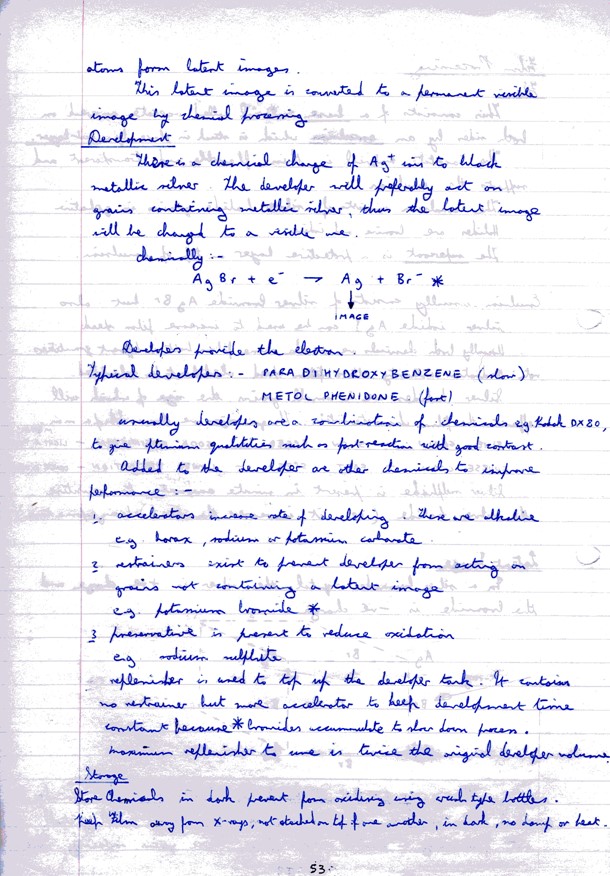 atoms form latent images.
This latent image is converted to a permanent visible
image by chemical processing
Development
There is a chemical change of Ag+ ions to black
metallic silver. The developer will preferably act on
grains containing metallic silver, thus the latent image
will be changed to a visible one.
chemically:-
AgBr + e⁻ → Ag + Br⁻ *
↓
IMAGE
Developers provide the electron.
Typical developers:- PARA DIHYDROXYBENZENE (slow)
METOL PHENIDONE (fast)
usually developers are a combination of chemicals eg. Kodak DX80,
to give qualities such as fast reaction with good contrast.
Added to the developer are other chemicals to improve
performance:-
1 accelerators increase rate of developing. These are alkaline
e.g. borax, sodium or potassium carbonate.
2 restrainers exist to prevent developer from acting on
grains not containing a latent image
e.g. potassium bromide *
3 preservative is present to reduce oxidation
e.g sodium sulphite
replenisher is used to top up the developer tank. It contains
no restrainer but more accelerator to keep development time
constant because * bromides accummulate to slow down process.
maximum replenisher to use is twice the original developer volume
Storage
Store Chemicals in dark prevent from oxidising using crush type bottles.
Keep Film away from x-rays, not stacked on top of one another, in dark, no damp or heat.
53.